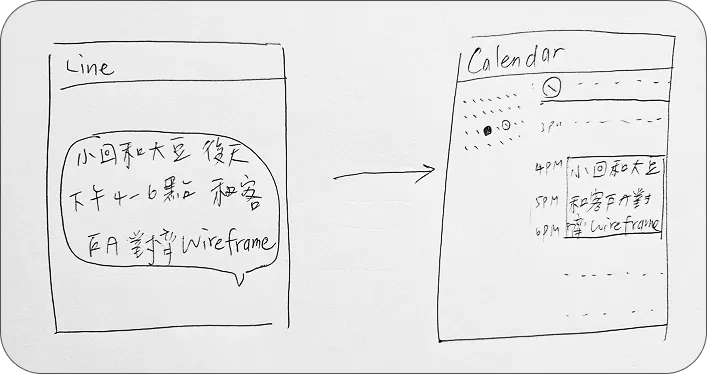 Line
小回和大豆 後天
下午4-6點 和客
戶A對齊Wireframe
Calendar
3PM
4PM
小回和大豆
5PM
和客戶A對
6PM
齊Wireframe